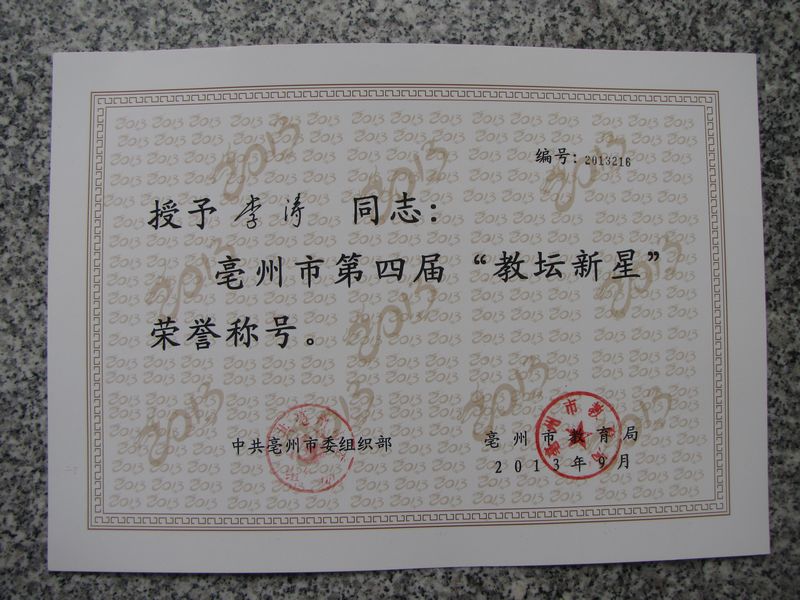 编号：2013216
授予 李涛 同志：
亳州市第四届“教坛新星”
荣誉称号。
中共亳州市委组织部 亳州市教育局
2013年9月